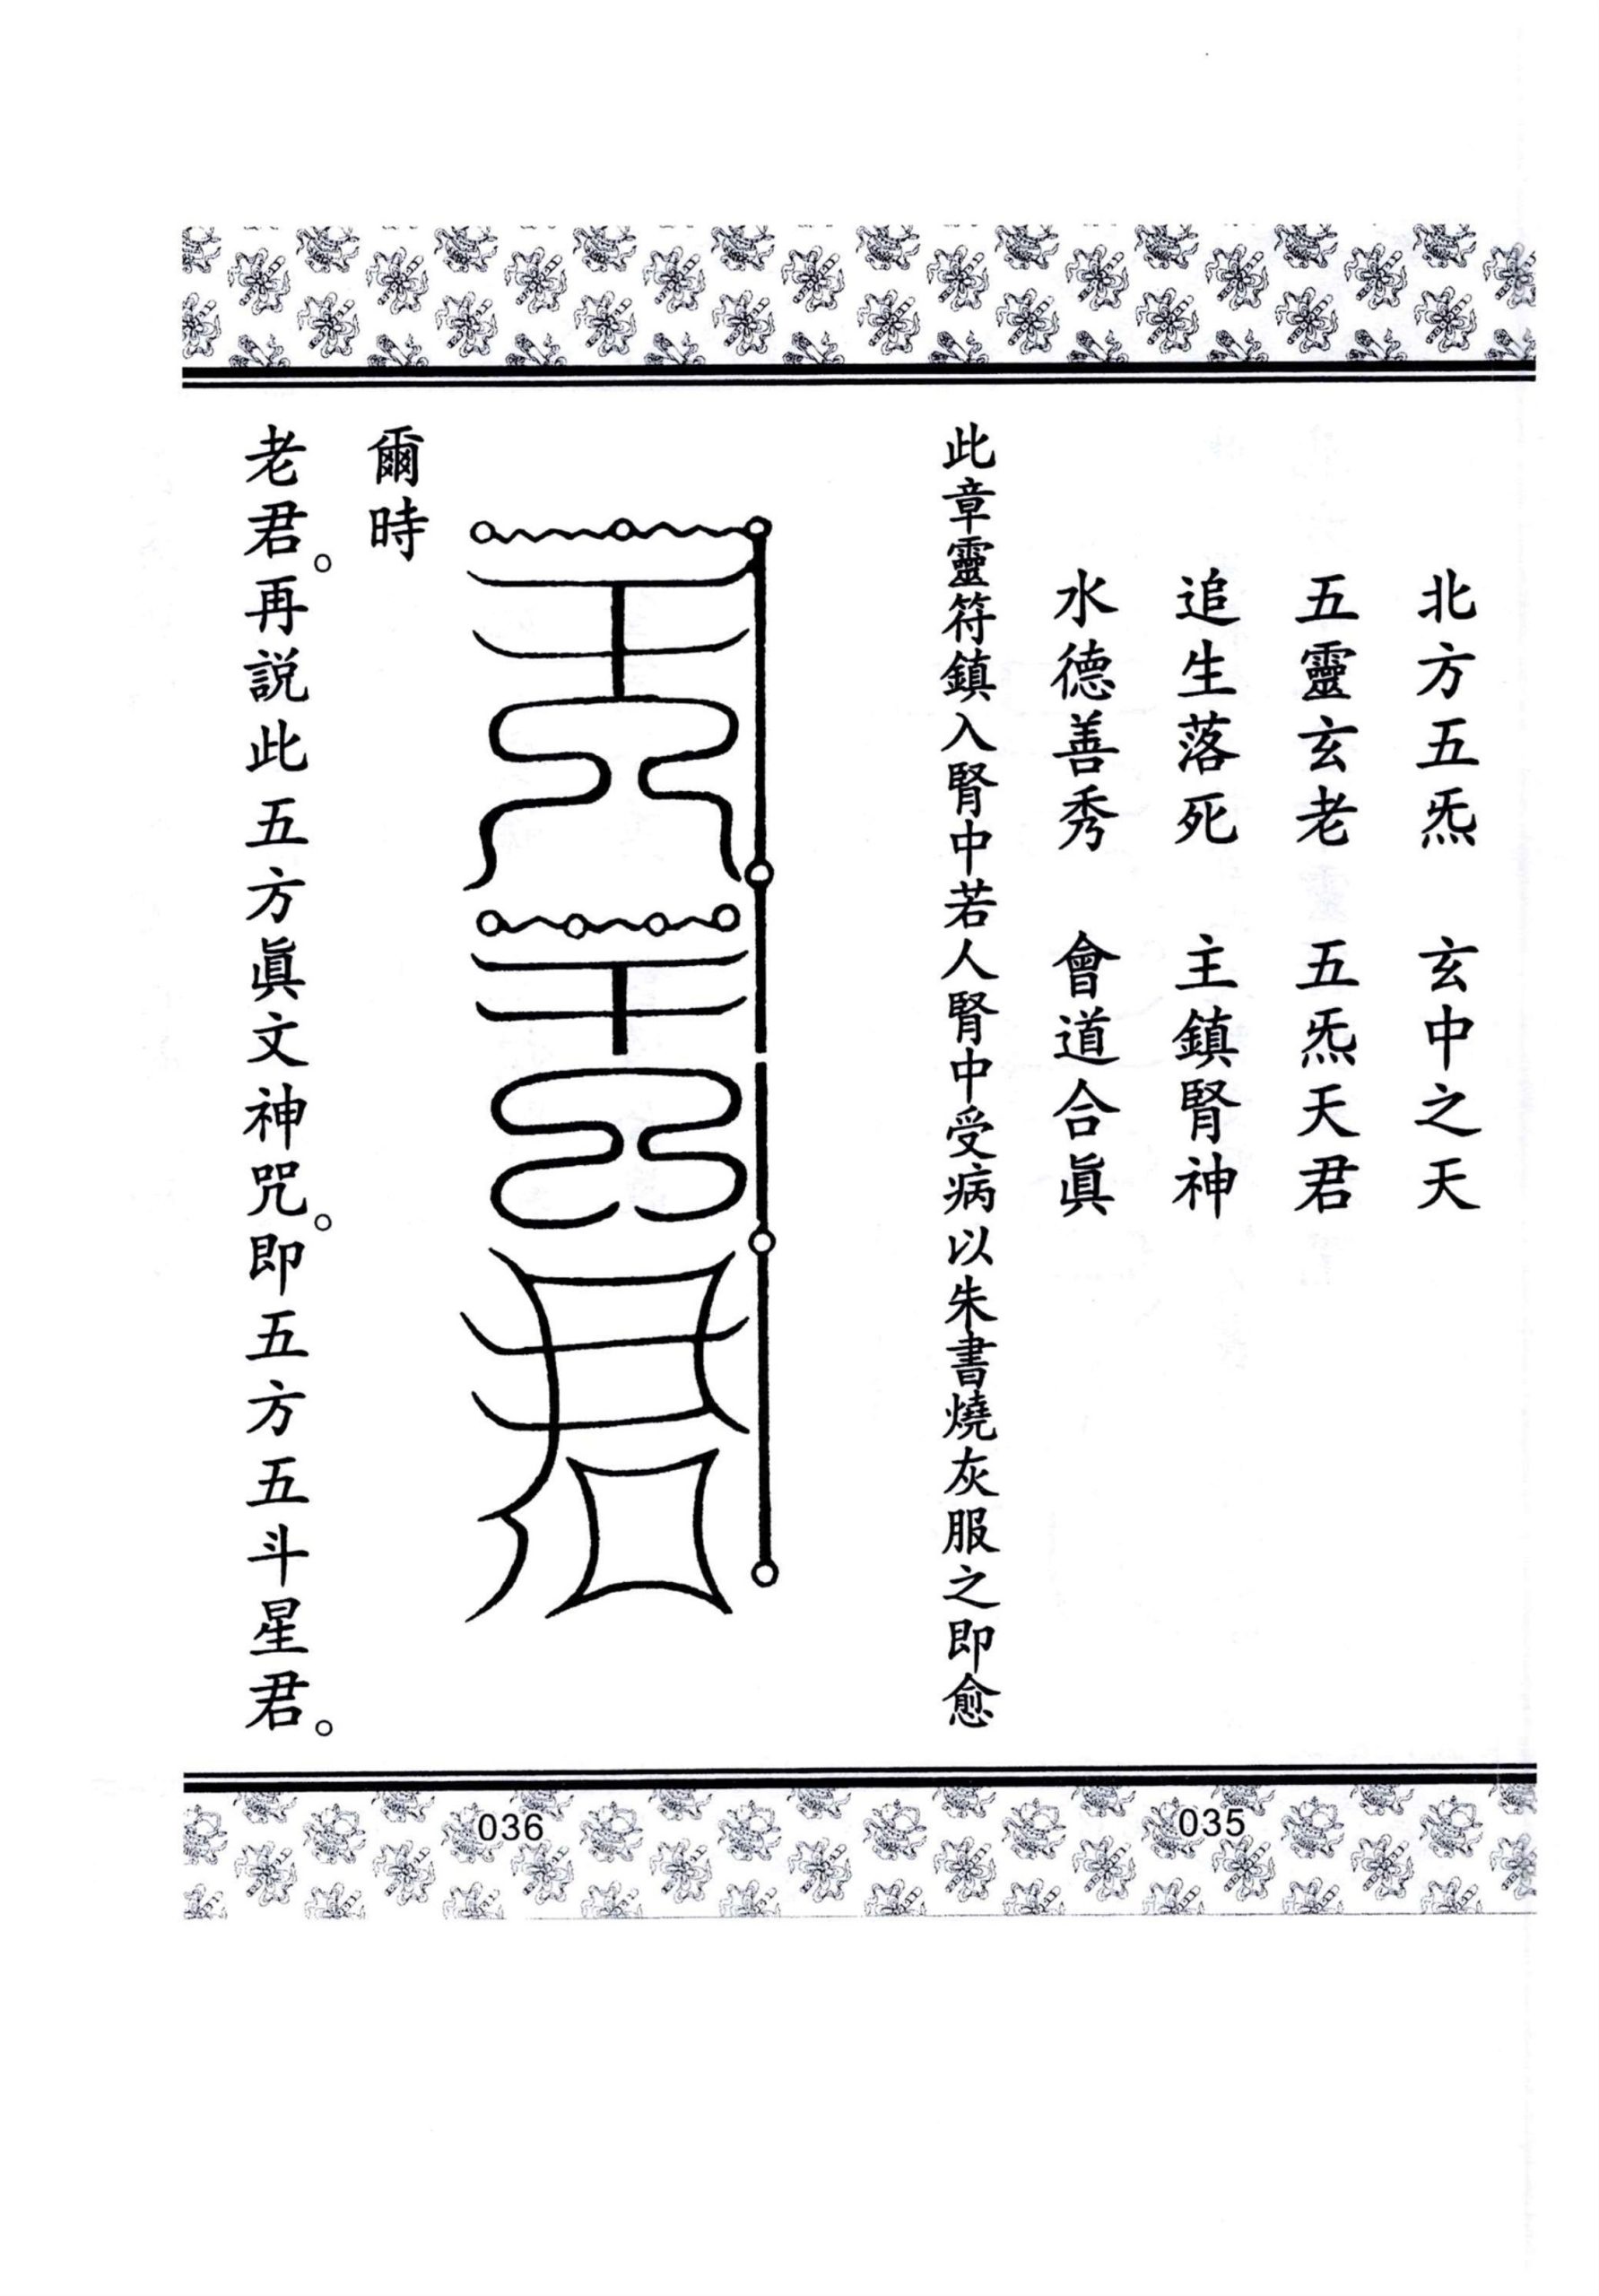 北方五炁　玄中之天
五靈玄老　五炁天君
追生落死　主鎮腎神
水德善秀　會道合眞
此章靈符鎮入腎中若人腎中受病以朱書燒灰服之即愈
爾時
老君。再說此五方眞文神咒。即五方五斗星君。
035
036